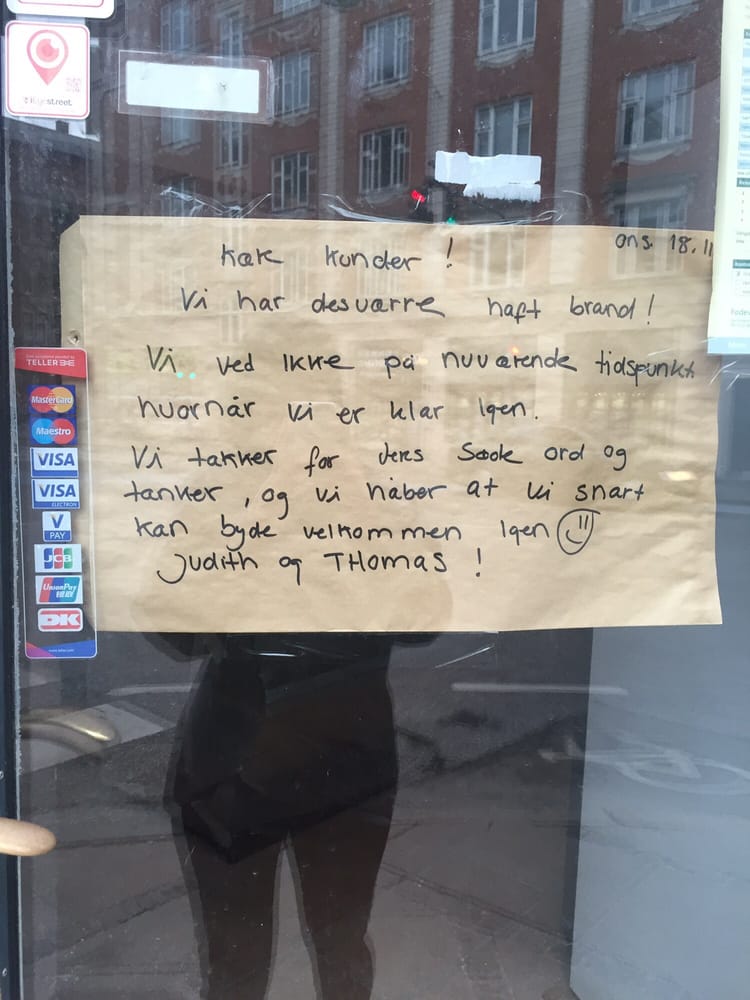 ons. 18.11
kæk kunder !
Vi har desværre haft brand !
Vi ved ikke på nuværende tidspunkt
hvornår vi er klar igen.
Vi takker for deres søde ord og
tanker, og vi håber at vi snart
kan byde velkommen igen
Judith og THomas !
TELLER
MasterCard
Maestro
VISA
VISA
ELECTRON
V
PAY
JCB
UnionPay
DK